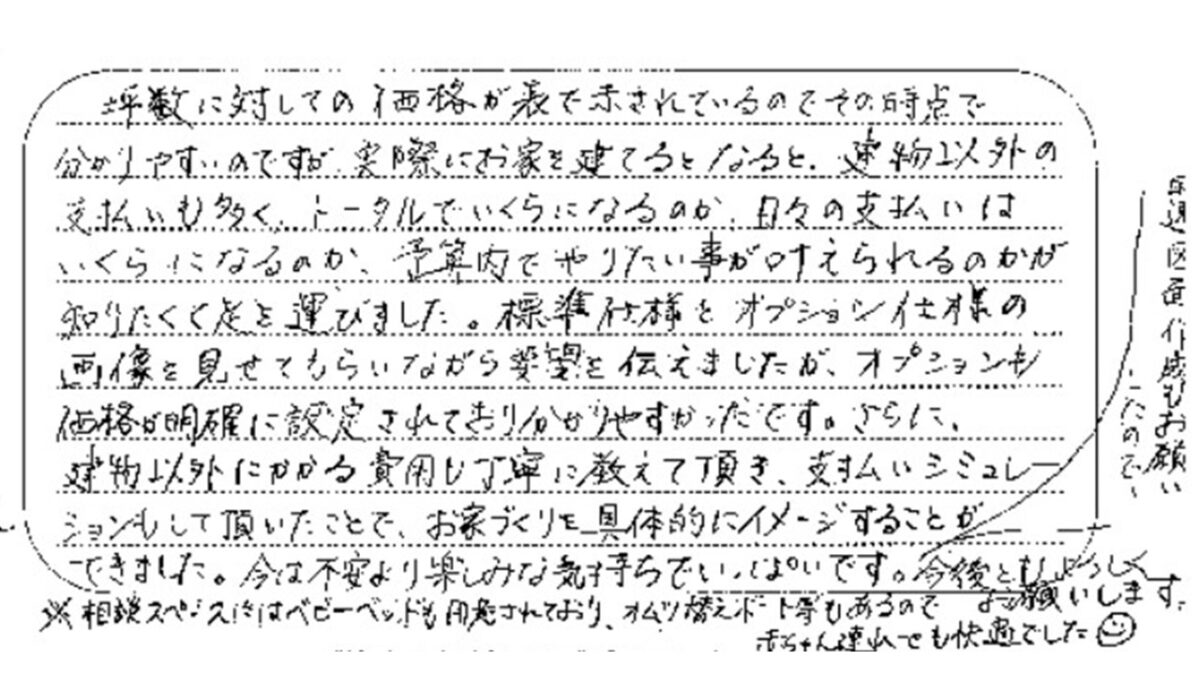 坪数に対しての価格が表で示されているのでその時点で
分かりやすいのですが、実際にお家を建てるとなると、建物以外の
支払いも多く、トータルでいくらになるのか、日々の支払いは
いくらになるのか、予算内でやりたい事が叶えられるのかが
知りたくて足を運びました。標準仕様とオプション仕様の
画像を見せてもらいながら要望を伝えましたが、オプションも
価格が明確に設定されており分かりやすかったです。さらに、
建物以外にかかる費用も丁寧に教えて頂き、支払いシミュレー
ションもして頂いたことで、お家づくりを具体的にイメージすることが
できました。今は不安より楽しみな気持ちでいっぱいです。今後ともよろしく
お願いします。
図面作成もお願い
したので、
※相談スペースにはベビーベッドも用意されており、オムツ替えボード等もあるので
赤ちゃん連れでも快適でした